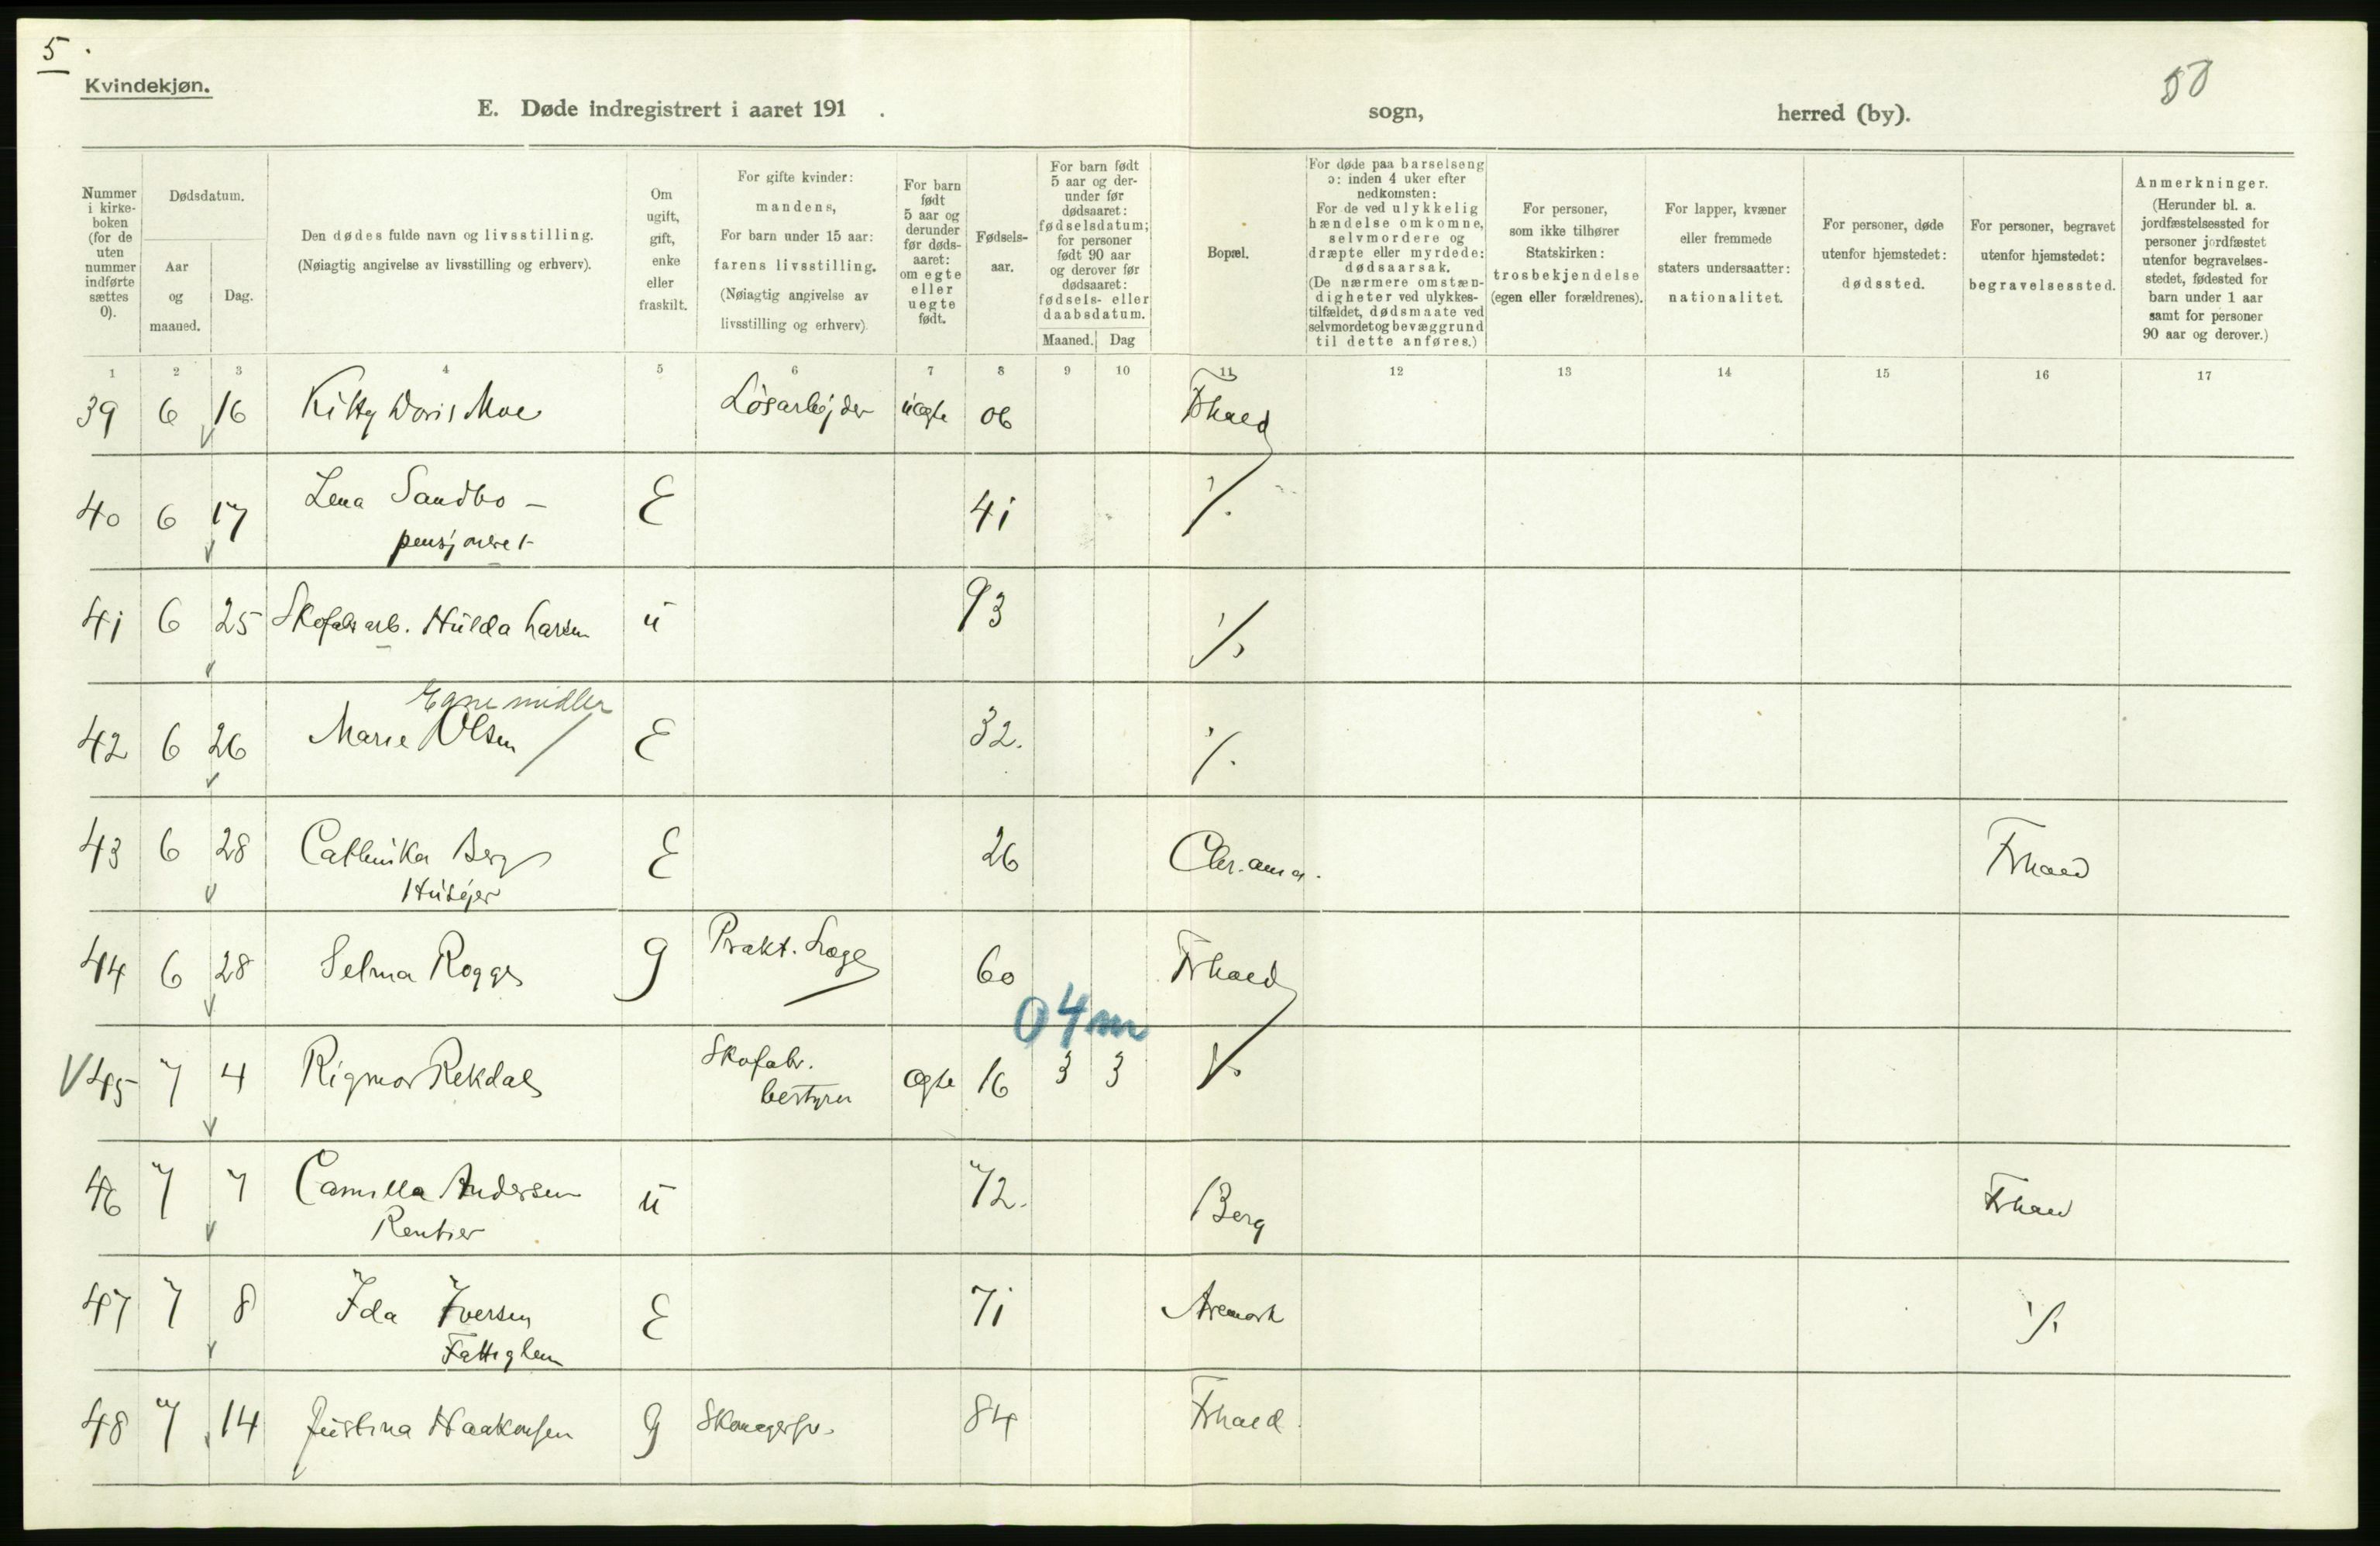 5
Kvindekjøn.
50
E. Døde indregistrert i aaret 191 . sogn, herred (by).
Nummer i kirkeboken (for de uten nummer indførte sættes 0).
Dødsdatum.
Aar og maaned.
Dag.
Den dødes fulde navn og livsstilling.
(Nøiagtig angivelse av livsstilling og erhverv).
Om ugift, gift, enke eller fraskilt.
For gifte kvinder: mandens,
For barn under 15 aar: farens livsstilling.
(Nøiagtig angivelse av livsstilling og erhverv).
For barn født 5 aar og derunder før dødsaaret: om egte eller uegte født.
Fødselsaar.
For barn født 5 aar og derunder før dødsaaret: fødselsdatum; for personer født 90 aar og derover før dødsaaret: fødsels- eller daabsdatum.
Maaned. Dag
Bopæl.
For døde paa barselseng ɔ: inden 4 uker efter nedkomsten:
For de ved ulykkelig hændelse omkomne, selvmordere og dræpte eller myrdede: dødsaarsak.
(De nærmere omstændigheter ved ulykkestilfældet, dødsmaate ved selvmordet og bevæggrund til dette anføres.)
For personer, som ikke tilhører Statskirken: trosbekjendelse (egen eller forældrenes).
For lapper, kvæner eller fremmede staters undersaatter: nationalitet.
For personer, døde utenfor hjemstedet: dødssted.
For personer, begravet utenfor hjemstedet: begravelsessted.
Anmerkninger.
(Herunder bl. a. jordfæstelsessted for personer jordfæstet utenfor begravelsesstedet, fødested for barn under 1 aar samt for personer 90 aar og derover.)
1 2 3 4 5 6 7 8 9 10 11 12 13 14 15 16 17
39 6 16 Kitty Doris Moe Løsarbejder uegte 06 Frhald
40 6 17 Lena Sandbo - E 41 ./.
pensjoneret
41 6 25 Skofabr arb. Hulda Larsen u 93 ./.
Egne midler
42 6 26 Marie Olsen / E 32. ./.
43 6 28 Cathinka Berg E 26 Chr.ania. Frhald
Husejer
44 6 28 Selma Rogge g Prakt. Læge 60 Frhald
04m
45 7 4 Rigmor Rekdal Skofabr. ægte 16 3 3 ./.
bestyrer
46 7 7 Camilla Andersen u 72. Berg Frhald
Rentier
47 7 8 Ida Iversen E 71 Aremark ./.
Fattiglem
48 7 14 Justina Haakonsen g 84 Frhald